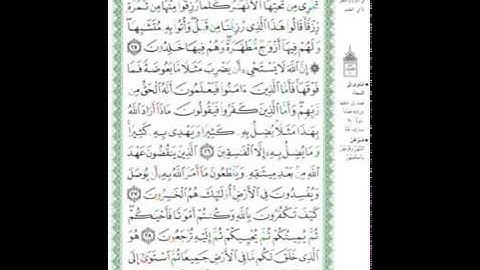 تَجْرِى مِن تَحْتِهَا ٱلْأَنْهَٰرُ كُلَّمَا رُزِقُوا۟ مِنْهَا مِن ثَمَرَةٍ
رِّزْقًا قَالُوا۟ هَٰذَا ٱلَّذِى رُزِقْنَا مِن قَبْلُ وَأُتُوا۟ بِهِۦ مُتَشَٰبِهًا
وَلَهُمْ فِيهَآ أَزْوَٰجٌ مُّطَهَّرَةٌ وَهُمْ فِيهَا خَٰلِدُونَ ٢٥
۞ إِنَّ ٱللَّهَ لَا يَسْتَحْىِۦٓ أَن يَضْرِبَ مَثَلًا مَّا بَعُوضَةً فَمَا
فَوْقَهَا فَأَمَّا ٱلَّذِينَ ءَامَنُوا۟ فَيَعْلَمُونَ أَنَّهُ ٱلْحَقُّ مِن
رَّبِّهِمْ وَأَمَّا ٱلَّذِينَ كَفَرُوا۟ فَيَقُولُونَ مَاذَآ أَرَادَ ٱللَّهُ
بِهَٰذَا مَثَلًا يُضِلُّ بِهِۦ كَثِيرًا وَيَهْدِى بِهِۦ كَثِيرًا
وَمَا يُضِلُّ بِهِۦٓ إِلَّا ٱلْفَٰسِقِينَ ٢٦ ٱلَّذِينَ يَنقُضُونَ عَهْدَ
ٱللَّهِ مِنۢ بَعْدِ مِيثَٰقِهِۦ وَيَقْطَعُونَ مَآ أَمَرَ ٱللَّهُ بِهِۦٓ أَن يُوصَلَ
وَيُفْسِدُونَ فِى ٱلْأَرْضِ أُو۟لَٰٓئِكَ هُمُ ٱلْخَٰسِرُونَ ٢٧
كَيْفَ تَكْفُرُونَ بِٱللَّهِ وَكُنتُمْ أَمْوَٰتًا فَأَحْيَٰكُمْ
ثُمَّ يُمِيتُكُمْ ثُمَّ يُحْيِيكُمْ ثُمَّ إِلَيْهِ تُرْجَعُونَ ٢٨ هُوَ
ٱلَّذِى خَلَقَ لَكُم مَّا فِى ٱلْأَرْضِ جَمِيعًا ثُمَّ ٱسْتَوَىٰٓ إِلَى